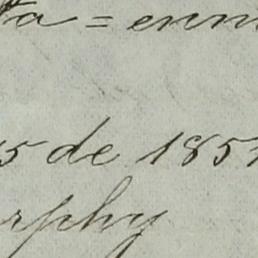 ta = enm
15 de 185
rphy